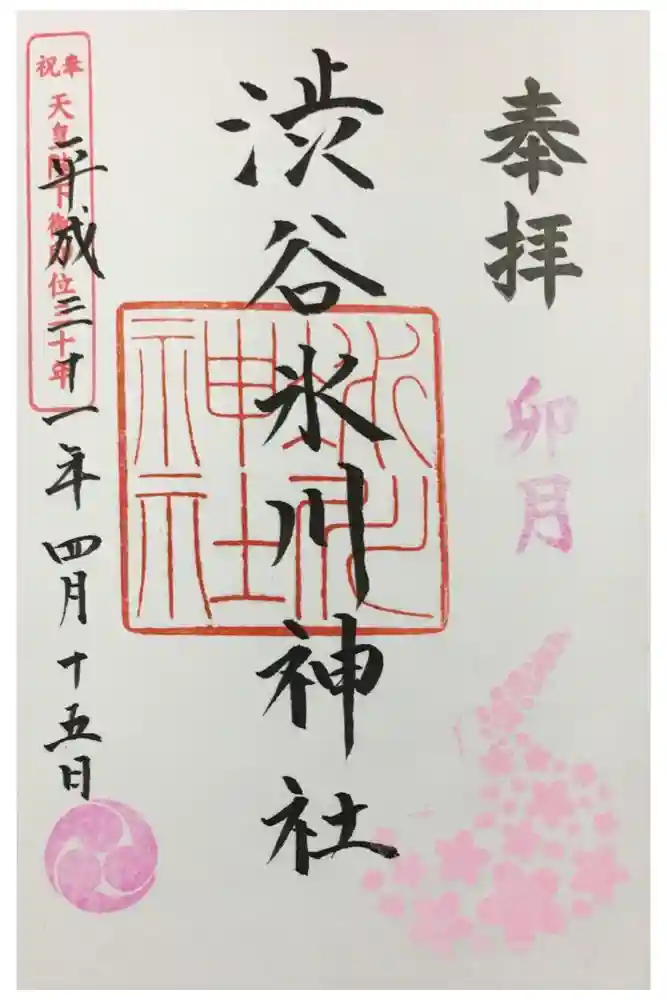 奉拝
卯月
渋谷氷川神社
氷川
神社
奉祝
天皇陛下御位三十年
平成三十一年四月十五日